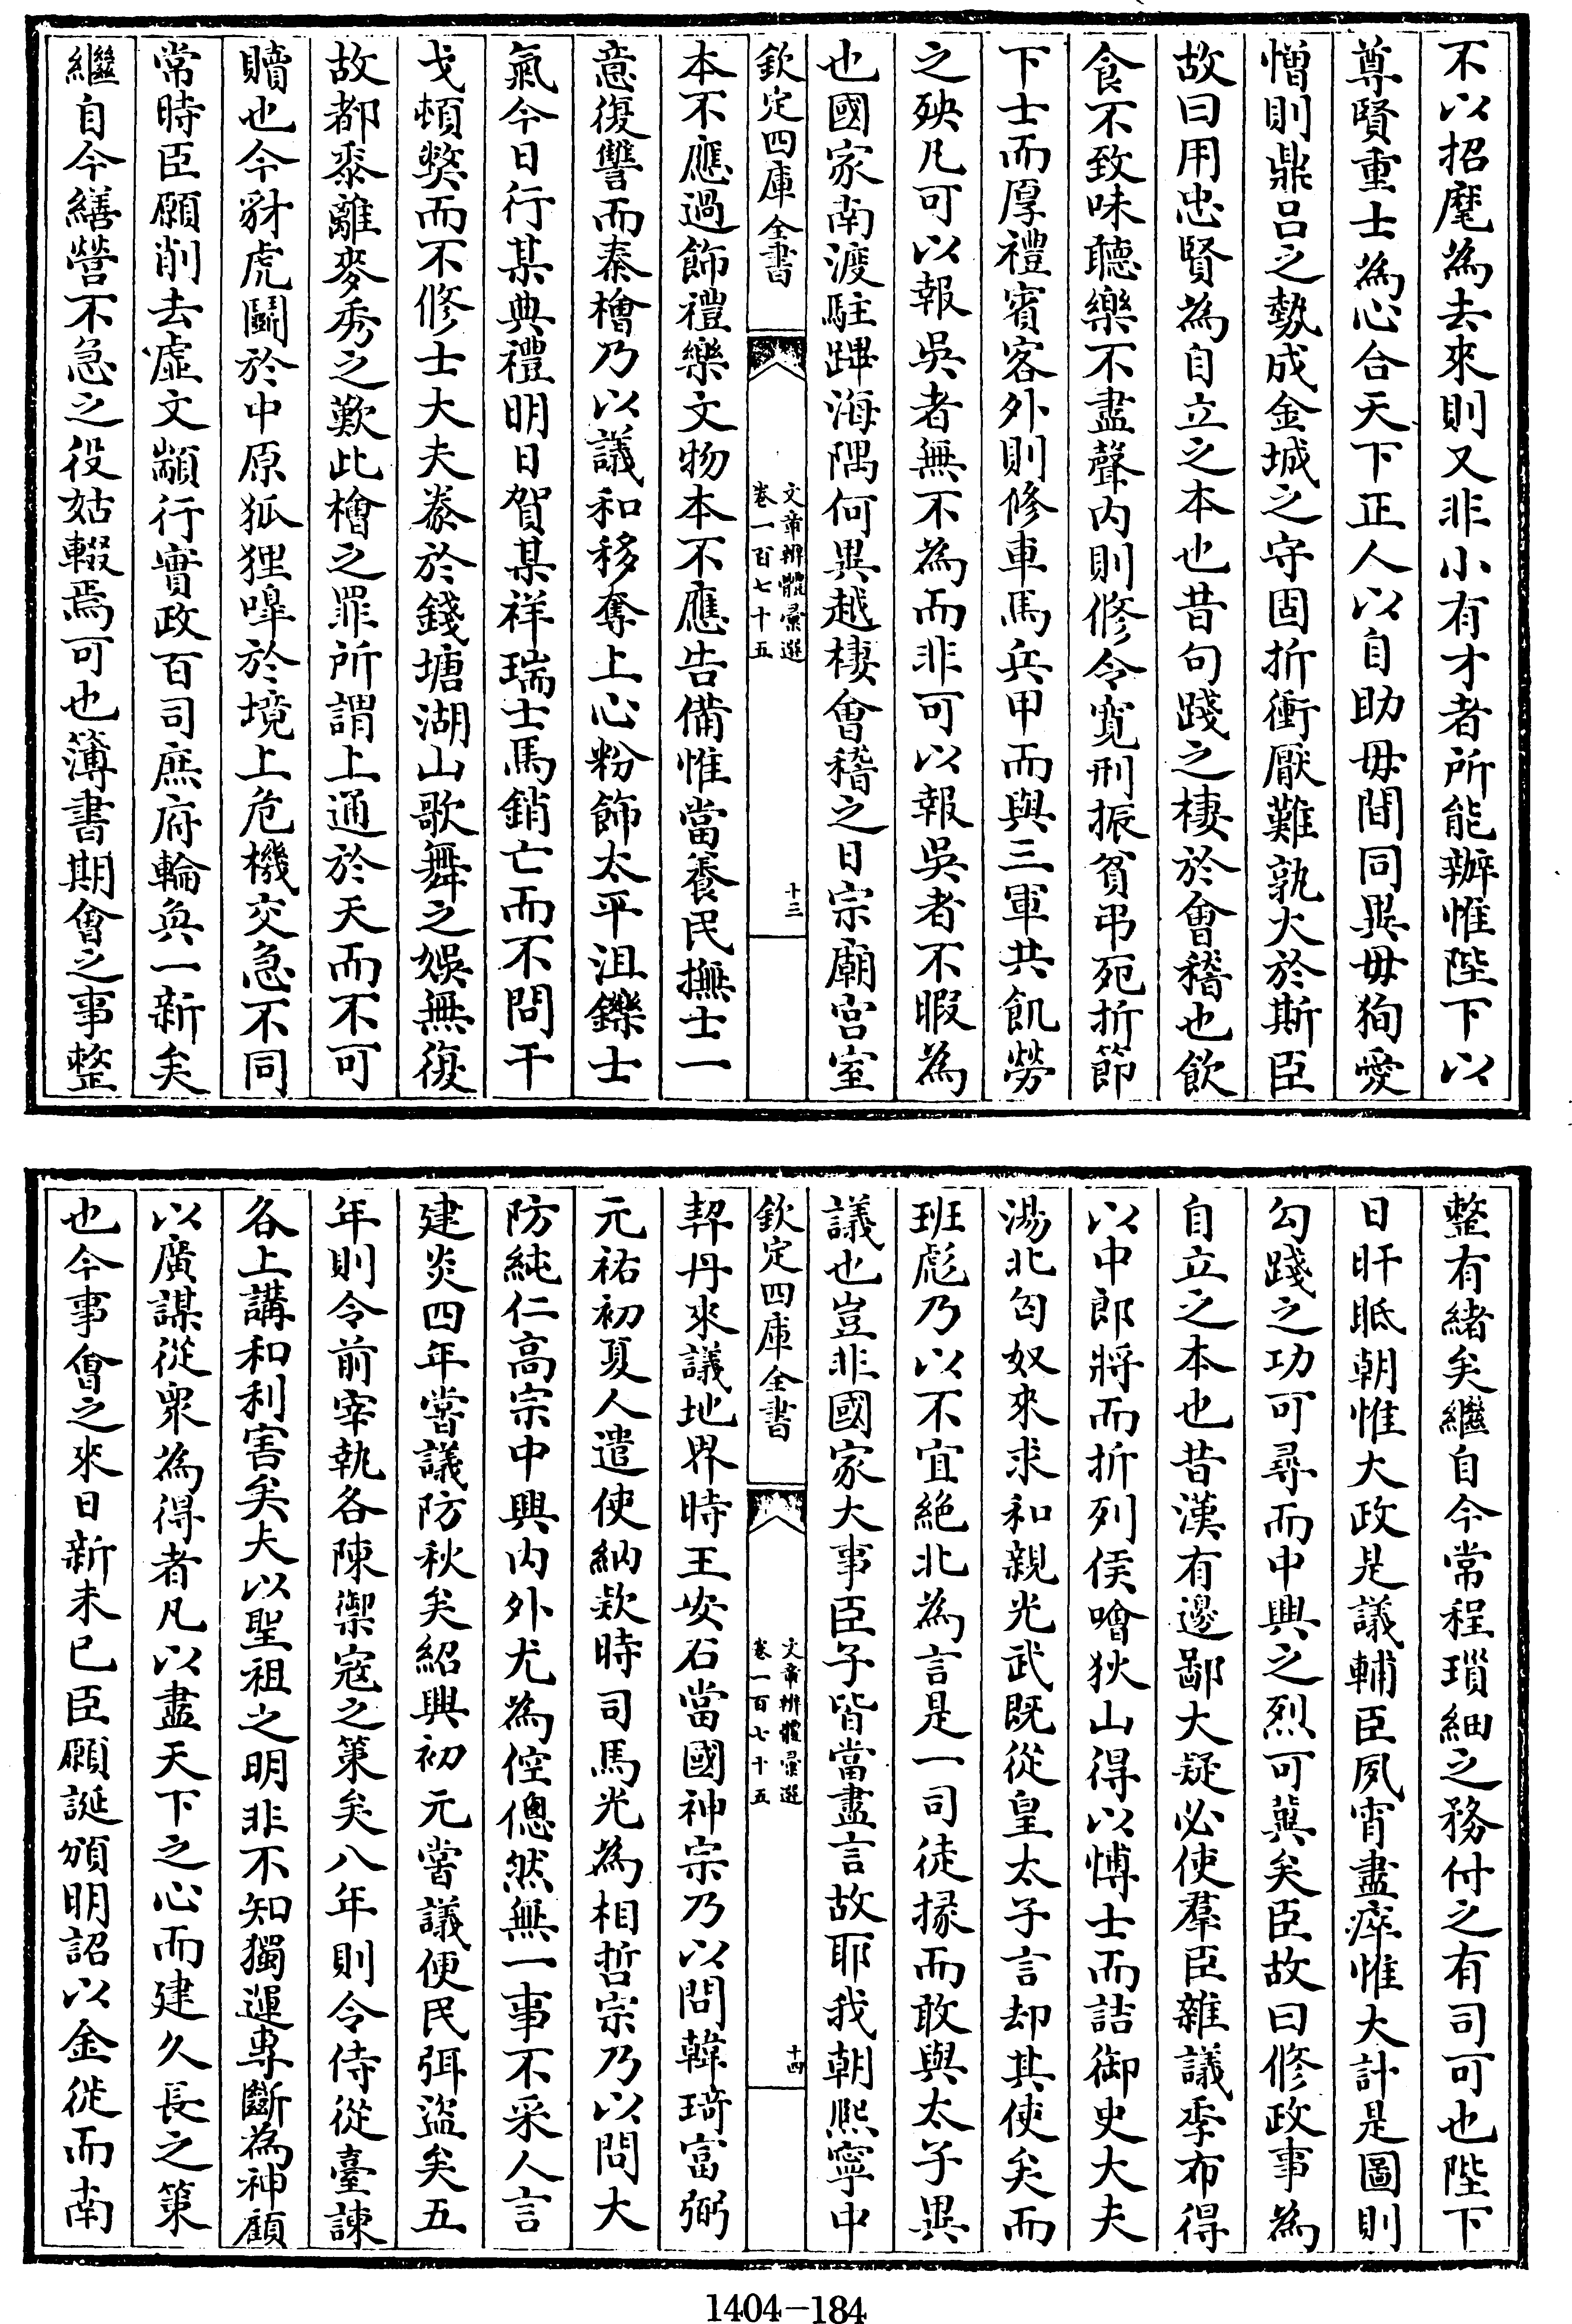 不以招麾為去來則又非小有才者所能辦惟陛下以
尊賢重士為心合天下正人以自助毋間同異毋狥愛
憎則鼎呂之勢成金城之守固折衝厭難孰大於斯臣
故曰用忠賢為自立之本也昔句踐之棲於會稽也飲
食不致味聽樂不盡聲内則修令寛刑振貧弔死折節
下士而厚禮賓客外則修車馬兵甲而與三軍共飢勞
之殃凡可以報吳者無不為而非可以報吳者不暇為
也國家南渡駐蹕海隅何異越棲會稽之日宗廟宫室
欽定四庫全書
文章辨體彚選
卷一百七十五
十三
本不應過飾禮樂文物本不應告備惟當養民撫士一
意復讐而秦檜乃以議和移奪上心粉飾太平沮鑠士
氣今日行某典禮明日賀某祥瑞士馬銷亡而不問干
戈頓獘而不修士大夫豢於錢塘湖山歌舞之娛無復
故都黍離麥秀之歎此檜之罪所謂上通於天而不可
贖也今豺虎鬪於中原狐狸嘷於境上危機交急不同
常時臣願削去虛文顓行實政百司庶府輪奐一新矣
繼自今繕營不急之役姑輟焉可也簿書期會之事整
整有緒矣繼自今常程瑣細之務付之有司可也陛下
日旰眡朝惟大政是議輔臣夙宵盡瘁惟大計是圖則
勾踐之功可尋而中興之烈可冀矣臣故曰修政事為
自立之本也昔漢有邊鄙大疑必使羣臣雜議季布得
以中郎將而折列侯噲狄山得以博士而詰御史大夫
湯北匈奴來求和親光武既從皇太子言却其使矣而
班彪乃以不宜絶北為言是一司徒掾而敢與太子異
議也豈非國家大事臣子皆當盡言故耶我朝熙寧中
欽定四庫全書
文章辨體彚選
卷一百七十五
十四
契丹來議地界時王安石當國神宗乃以問韓琦富弼
元祐初夏人遣使納欵時司馬光為相哲宗乃以問大
防純仁高宗中興内外尤為倥傯然無一事不采人言
建炎四年嘗議防秋矣紹興初元嘗議便民弭盜矣五
年則令前宰執各陳禦宼之策矣八年則令侍從臺諫
各上講和利害矣夫以聖祖之明非不知獨運專斷為神顧
以廣謀從衆為得者凡以盡天下之心而建久長之策
也今事會之來日新未已臣願誕頒明詔以金徙而南
1404—184